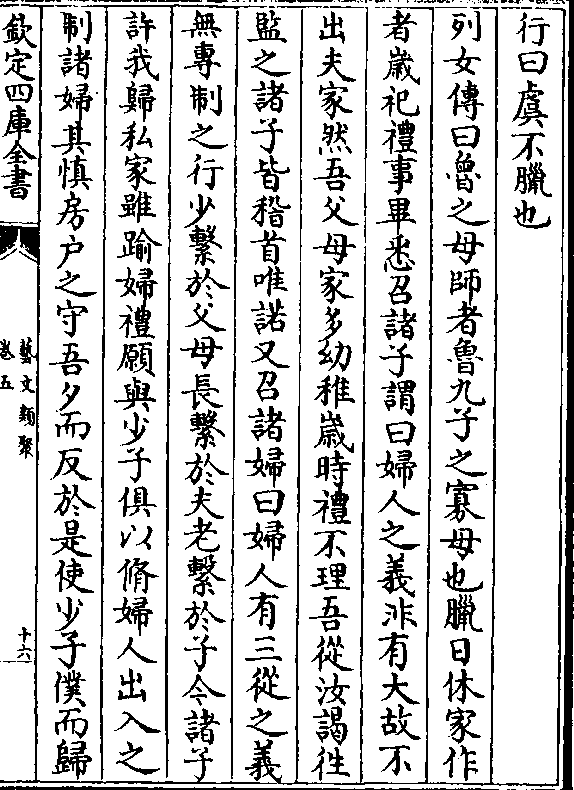 行曰虞不臘也
列女傳曰魯之母師者魯九子之寡母也臘日休家作
者嵗祀禮事畢悉召諸子謂曰婦人之義非有大故不
出夫家然吾父母家多幼稚嵗時禮不理吾從汝謁往
監之諸子皆稽首唯諾又召諸婦曰婦人有三從之義
無專制之行少繫於父母長繫於夫老繫於子今諸子
許我歸私家雖踰婦禮願與少子俱以脩婦人出入之
制諸婦其慎房户之守吾夕而反於是使少子僕而歸
欽定四庫全書
藝文類聚
卷五
十六